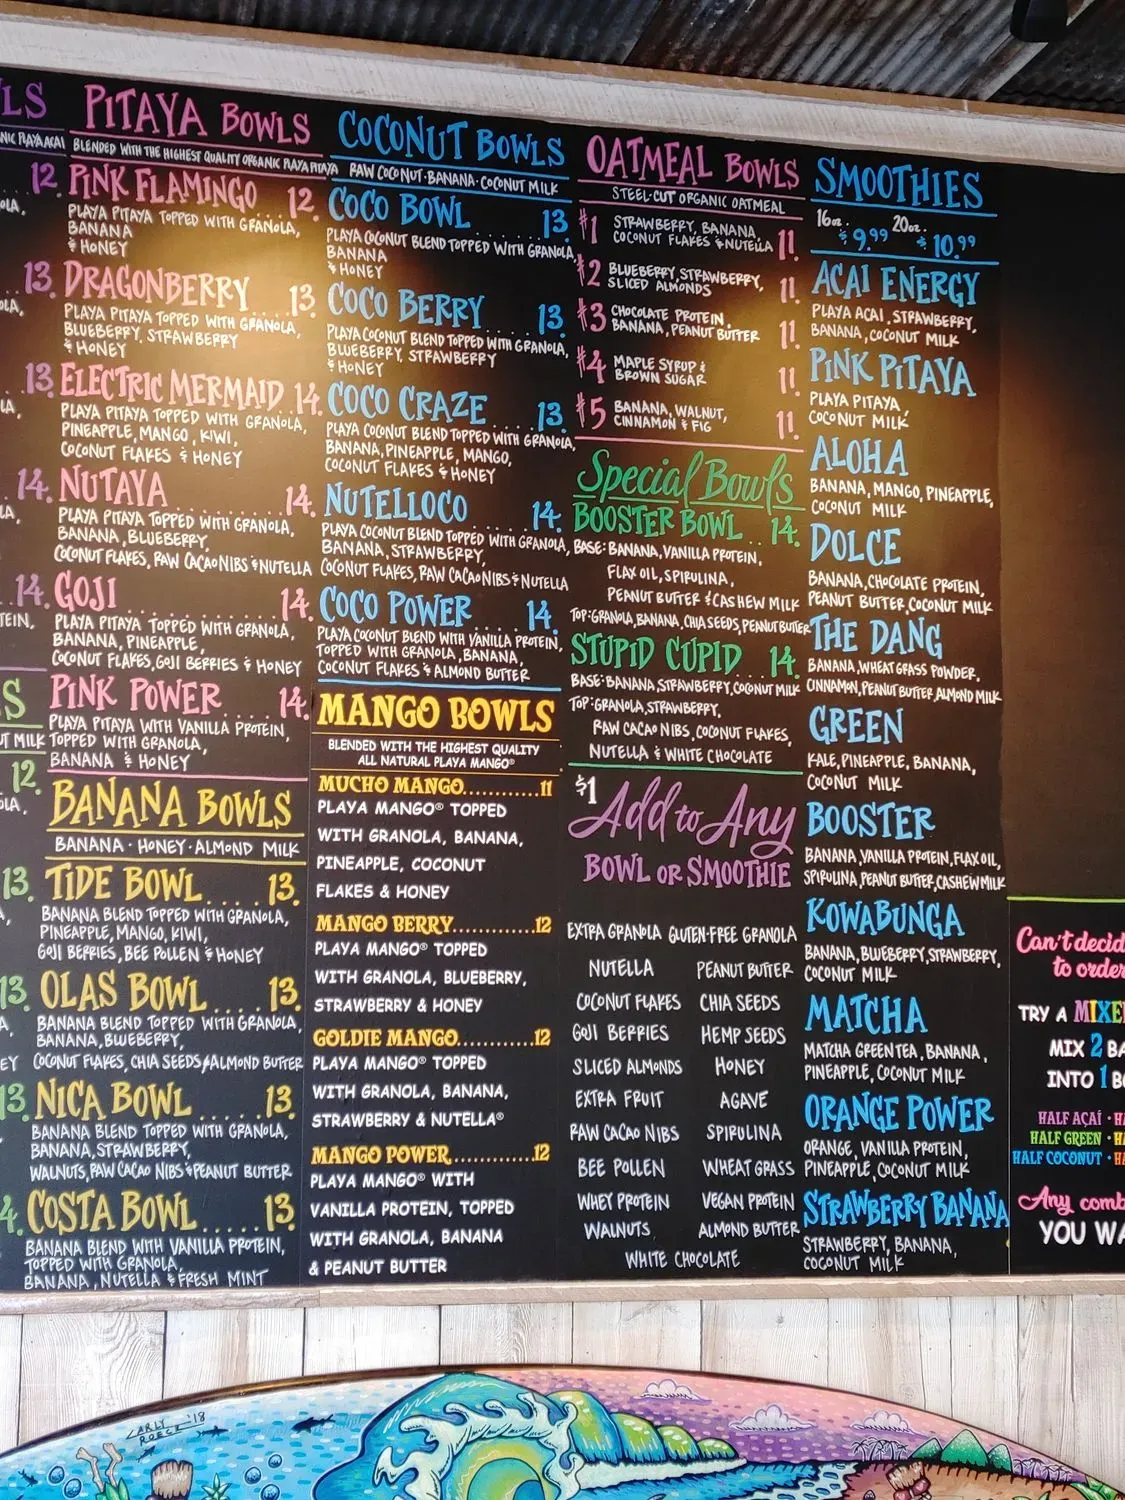 LS
NIC PLAYA ACAI
12.
OLA,
13.
OLA,
13.
LA,
14.
LA,
14.
TEIN,
S
UT MILK
12.
OLA,
13.
13.
A,
EY
13.
4.
PITAYA BOWLS
BLENDED WITH THE HIGHEST QUALITY ORGANIC PLAYA PITAYA
PINK FLAMINGO 12.
PLAYA PITAYA TOPPED WITH GRANOLA,
BANANA
& HONEY
DRAGONBERRY 13.
PLAYA PITAYA TOPPED WITH GRANOLA,
BLUEBERRY, STRAWBERRY
& HONEY
ELECTRIC MERMAID 14.
PLAYA PITAYA TOPPED WITH GRANOLA,
PINEAPPLE, MANGO, KIWI,
COCONUT FLAKES & HONEY
NUTAYA 14.
PLAYA PITAYA TOPPED WITH GRANOLA,
BANANA, BLUEBERRY,
COCONUT FLAKES, RAW CACAO NIBS & NUTELLA
GOJI 14.
PLAYA PITAYA TOPPED WITH GRANOLA,
BANANA, PINEAPPLE,
COCONUT FLAKES, GOJI BERRIES & HONEY
PINK POWER 14.
PLAYA PITAYA WITH VANILLA PROTEIN,
TOPPED WITH GRANOLA,
BANANA & HONEY
BANANA BOWLS
BANANA · HONEY · ALMOND MILK
TIDE BOWL 13.
BANANA BLEND TOPPED WITH GRANOLA,
PINEAPPLE, MANGO, KIWI,
GOJI BERRIES, BEE POLLEN & HONEY
OLAS BOWL 13.
BANANA BLEND TOPPED WITH GRANOLA,
BANANA, BLUEBERRY,
COCONUT FLAKES, CHIA SEEDS & ALMOND BUTTER
NICA BOWL 13.
BANANA BLEND TOPPED WITH GRANOLA,
BANANA, STRAWBERRY,
WALNUTS, RAW CACAO NIBS & PEANUT BUTTER
COSTA BOWL 13.
BANANA BLEND WITH VANILLA PROTEIN,
TOPPED WITH GRANOLA,
BANANA, NUTELLA & FRESH MINT
COCONUT BOWLS
RAW COCONUT · BANANA · COCONUT MILK
COCO BOWL 13.
PLAYA COCONUT BLEND TOPPED WITH GRANOLA,
BANANA
& HONEY
COCO BERRY 13.
PLAYA COCONUT BLEND TOPPED WITH GRANOLA,
BLUEBERRY, STRAWBERRY
& HONEY
COCO CRAZE 13.
PLAYA COCONUT BLEND TOPPED WITH GRANOLA,
BANANA, PINEAPPLE, MANGO,
COCONUT FLAKES & HONEY
NUTELLOCO 14.
PLAYA COCONUT BLEND TOPPED WITH GRANOLA,
BANANA, STRAWBERRY,
COCONUT FLAKES, RAW CACAO NIBS & NUTELLA
COCO POWER 14.
PLAYA COCONUT BLEND WITH VANILLA PROTEIN,
TOPPED WITH GRANOLA, BANANA,
COCONUT FLAKES & ALMOND BUTTER
MANGO BOWLS
BLENDED WITH THE HIGHEST QUALITY
ALL NATURAL PLAYA MANGO®
MUCHO MANGO............11
PLAYA MANGO® TOPPED
WITH GRANOLA, BANANA,
PINEAPPLE, COCONUT
FLAKES & HONEY
MANGO BERRY............12
PLAYA MANGO® TOPPED
WITH GRANOLA, BLUEBERRY,
STRAWBERRY & HONEY
GOLDIE MANGO...........12
PLAYA MANGO® TOPPED
WITH GRANOLA, BANANA,
STRAWBERRY & NUTELLA®
MANGO POWER............12
PLAYA MANGO® WITH
VANILLA PROTEIN, TOPPED
WITH GRANOLA, BANANA
& PEANUT BUTTER
OATMEAL BOWLS
STEEL-CUT ORGANIC OATMEAL
#1 STRAWBERRY, BANANA,
COCONUT FLAKES & NUTELLA 11.
#2 BLUEBERRY, STRAWBERRY,
SLICED ALMONDS 11.
#3 CHOCOLATE PROTEIN,
BANANA, PEANUT BUTTER 11.
#4 MAPLE SYRUP &
BROWN SUGAR 11.
#5 BANANA, WALNUT,
CINNAMON & FIG 11.
Special Bowls
BOOSTER BOWL .. 14.
BASE: BANANA, VANILLA PROTEIN,
FLAX OIL, SPIRULINA,
PEANUT BUTTER & CASHEW MILK
TOP: GRANOLA, BANANA, CHIA SEEDS, PEANUT BUTTER
STUPID CUPID 14.
BASE: BANANA, STRAWBERRY, COCONUT MILK
TOP: GRANOLA, STRAWBERRY,
RAW CACAO NIBS, COCONUT FLAKES,
NUTELLA & WHITE CHOCOLATE
$1 Add to Any
BOWL OR SMOOTHIE
EXTRA GRANOLA GLUTEN-FREE GRANOLA
NUTELLA PEANUT BUTTER
COCONUT FLAKES CHIA SEEDS
GOJI BERRIES HEMP SEEDS
SLICED ALMONDS HONEY
EXTRA FRUIT AGAVE
RAW CACAO NIBS SPIRULINA
BEE POLLEN WHEAT GRASS
WHEY PROTEIN VEGAN PROTEIN
WALNUTS ALMOND BUTTER
WHITE CHOCOLATE
SMOOTHIES
16oz. 20oz.
$9.99 $10.99
ACAI ENERGY
PLAYA ACAI, STRAWBERRY,
BANANA, COCONUT MILK
PINK PITAYA
PLAYA PITAYA,
COCONUT MILK
ALOHA
BANANA, MANGO, PINEAPPLE,
COCONUT MILK
DOLCE
BANANA, CHOCOLATE PROTEIN,
PEANUT BUTTER, COCONUT MILK
THE DANG
BANANA, WHEAT GRASS POWDER,
CINNAMON, PEANUT BUTTER, ALMOND MILK
GREEN
KALE, PINEAPPLE, BANANA,
COCONUT MILK
BOOSTER
BANANA, VANILLA PROTEIN, FLAX OIL,
SPIRULINA, PEANUT BUTTER, CASHEW MILK
KOWABUNGA
BANANA, BLUEBERRY, STRAWBERRY,
COCONUT MILK
MATCHA
MATCHA GREEN TEA, BANANA,
PINEAPPLE, COCONUT MILK
ORANGE POWER
ORANGE, VANILLA PROTEIN,
PINEAPPLE, COCONUT MILK
STRAWBERRY BANANA
STRAWBERRY, BANANA,
COCONUT MILK
Can't decid
to order
TRY A MIXE
MIX 2 BA
INTO 1 B
HALF AÇAÍ · H
HALF GREEN · H
HALF COCONUT · H
Any comb
YOU WA
'18